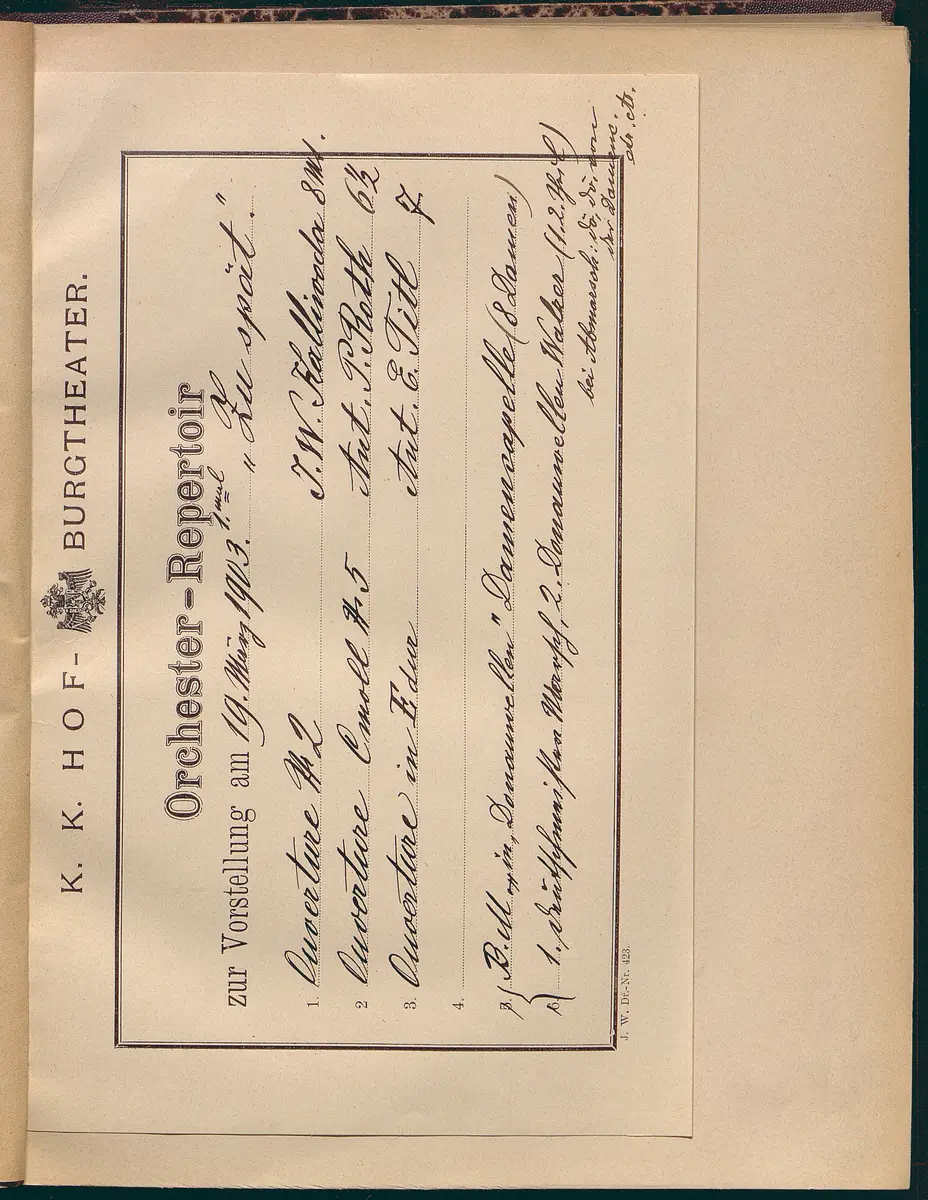 K. K. HOF- BURGTHEATER.
Orchester-Repertoir
zur Vorstellung am 19. März 1903. 1. mal „Zu spät."
1. Ouverture № 2 J. W. Kalliwoda 8 Mt.
2 Ouverture C moll № 5 Ant. P. Roth 6½
3. Ouverture in E dur Ant. E. Titl 7
4.
5. B. M. „Donauwellen" Damencapelle (8 Damen)
6. 1. 2. Donauwellen Walzer (1. 2. Thl)
bei Abmarsch: do, do, von
der Damenc.
J. W. Dr.-Nr. 423.